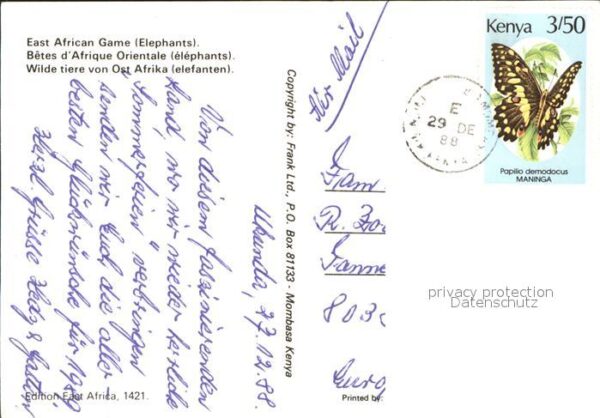 East African Game (Elephants).
Bêtes d'Afrique Orientale (éléphants).
Wilde tiere von Ost Afrika (elefanten).
Ukunda, 27.12.88.
Von diesem faszinierenden
Land, wo wir wieder herrliche
Sommerferien verbringen
senden wir Euch die aller-
besten Glückwünsche für 1989
Herzl. Grüsse
Edition East Africa, 1421.
Copyright by: Frank Ltd., P.O. Box 81133 - Mombasa Kenya
Air Mail
Fam
R.
803
Euro
Printed by:
Kenya 3/50
Papilio demodocus
MANINGA
E
29 DE
88
KENYA
privacy protection
Datenschutz